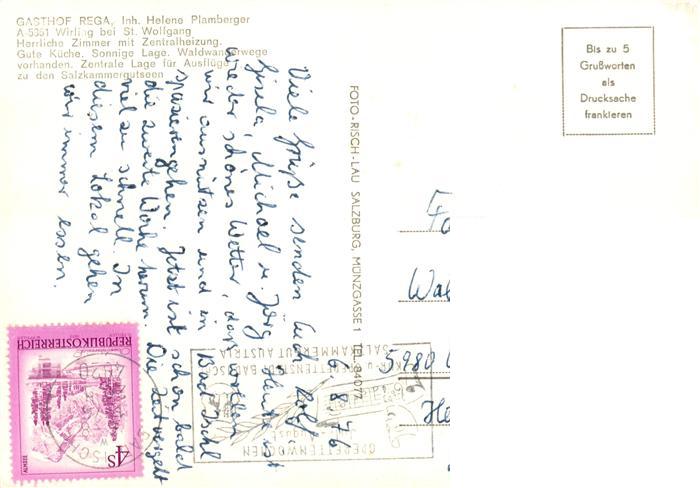 GASTHOF REGA, Inh. Helene Plamberger
A-5351 Wirling bei St. Wolfgang
Herrliche Zimmer mit Zentralheizung.
Gute Küche. Sonnige Lage. Waldwanderwege
vorhanden. Zentrale Lage für Ausflüge
zu den Salzkammergutseen
Bis zu 5
Grußworten
als
Drucksache
frankieren
FOTO-RISCH-LAU SALZBURG, MÜNZGASSE 1 TEL. 84077
6.8.76
Viele Grüße senden Euch Rolf,
Gisela, Michael u. Jörg. Heute ist
wieder schönes Wetter, daß wollen
wir ausnützen und in Bad Ischl
spazierengehen. Jetzt ist schon bald
die zweite Woche herum. Die Zeit vergeht
viel zu schnell. In
diesem Lokal gehen
wir immer essen.
Fa
Wal
5980
He
REPUBLIK ÖSTERREICH
4S
ALMSEE
OPERETTENWOCHEN
SALZKAMMERGUT AUSTRIA